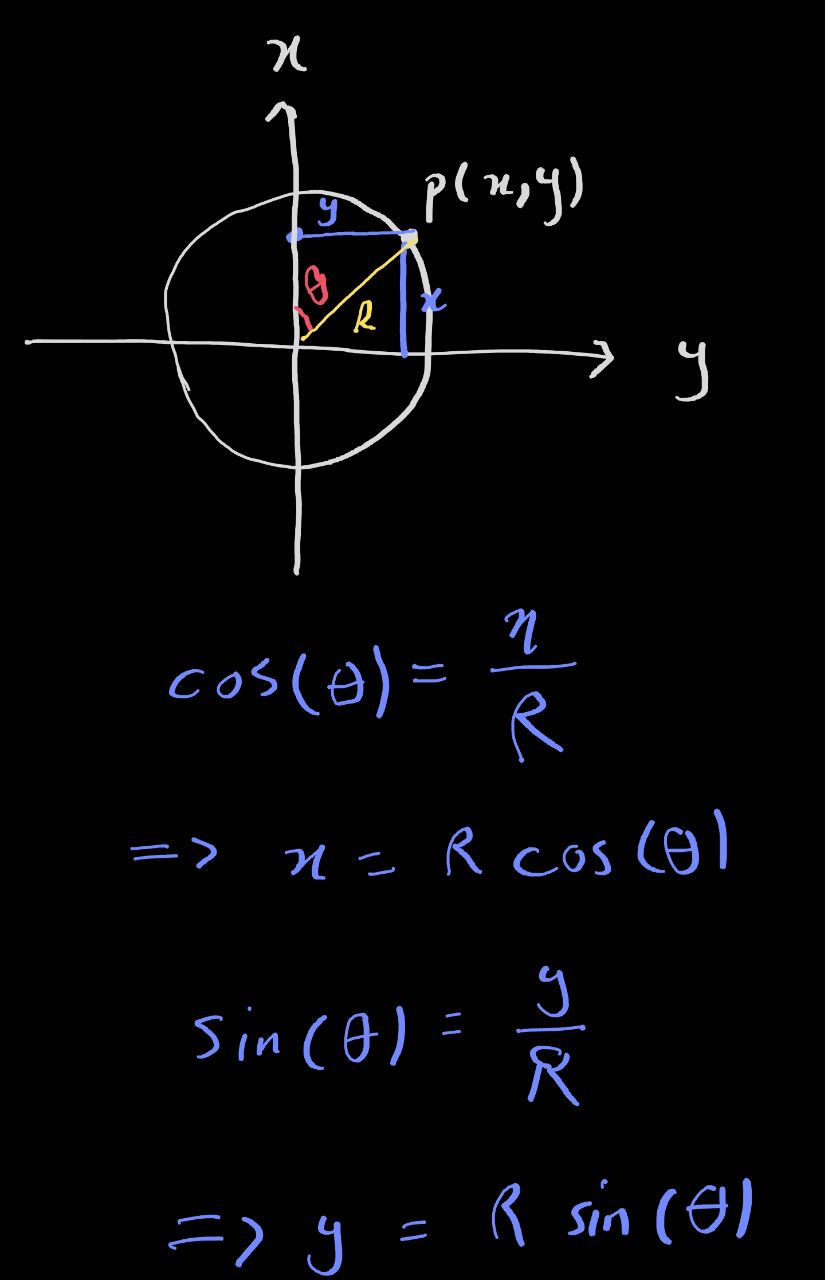 x
p(x,y)
y
θ
x
R
y
cos(θ) = x/R
=> x = R cos(θ)
sin(θ) = y/R
=> y = R sin(θ)